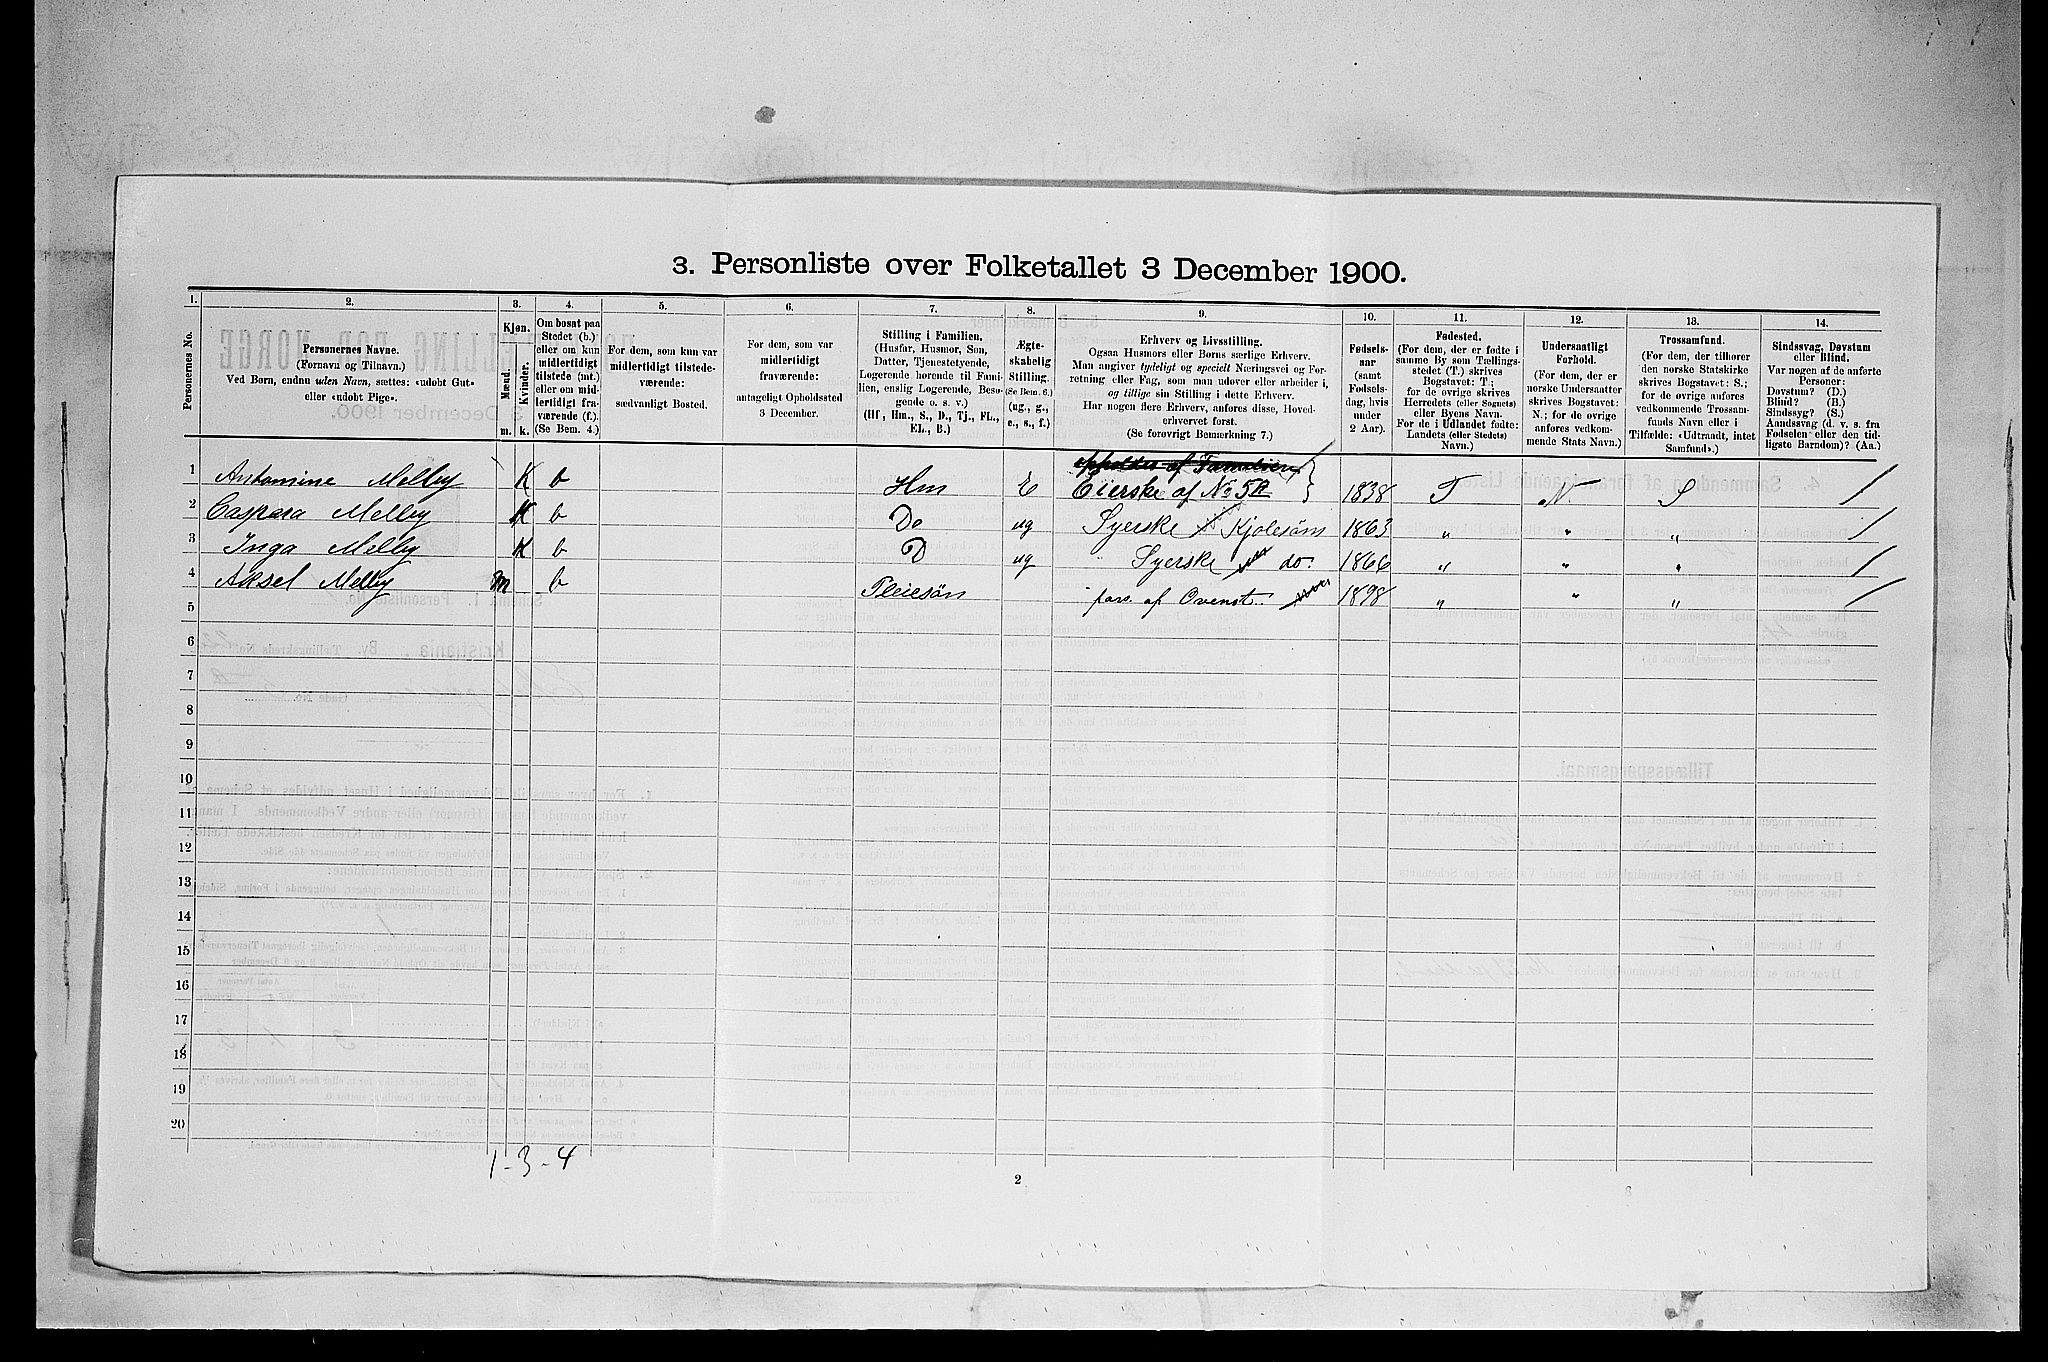 3. Personliste over Folketallet 3 December 1900.
1.
2.
3.
4.
5.
6.
7.
8.
9.
10.
11.
12.
13.
14.
Personernes No.
Personernes Navne.
(Fornavn og Tilnavn.)
Ved Børn, endnu uden Navn, sættes: «udøbt Gut»
eller «udøbt Pige».
Kjøn.
Mænd.
Kvinder.
m.
k.
Om bosat paa
Stedet (b.)
eller om kun
midlertidigt
tilstede (mt.)
eller om mid-
lertidigt fra-
værende (f.).
(Se Bem. 4.)
For dem, som kun var
midlertidigt tilstede-
værende:
sædvanligt Bosted.
For dem, som var
midlertidigt
fraværende:
antageligt Opholdssted
3 December.
Stilling i Familien.
(Husfar, Husmor, Søn,
Datter, Tjenestetyende,
Logerende hørende til Fami-
lien, enslig Logerende, Besø-
gende o. s. v.)
(Hf, Hm., S., D., Tj., FL.,
EL., B.)
Ægte-
skabelig
Stilling.
(Se Bem. 6.)
(ug., g.,
e., s., f.)
Erhverv og Livsstilling.
Ogsaa Husmors eller Børns særlige Erhverv.
Man angiver tydeligt og specielt Næringsvei og For-
retning eller Fag, som man udøver eller arbeider i,
og tillige sin Stilling i dette Erhverv.
Har nogen flere Erhverv, anføres disse, Hoved-
erhvervet først.
(Se forøvrigt Bemærkning 7.)
Fødsels-
aar
(samt
Fødsels-
dag, hvis
under
2 Aar).
Fødested.
(For dem, der er fødte i
samme By som Tællings-
stedet (T.) skrives
Bogstavet: T;
for de øvrige skrives
Herredets (eller Sognets)
eller Byens Navn.
For de i Udlandet fødte:
Landets (eller Stedets)
Navn.)
Undersaatligt
Forhold.
(For dem, der er
norske Undersaatter
skrives Bogstavet:
N.; for de øvrige
anføres vedkom-
mende Stats Navn.)
Trossamfund.
(For dem, der tilhører
den norske Statskirke
skrives Bogstavet: S.;
for de øvrige anføres
vedkommende Trossam-
funds Navn eller i
Tilfælde: «Udtraadt, intet
Samfund».)
Sindssvag, Døvstum
eller Blind.
Var nogen af de anførte
Personer:
Døvstum? (D.)
Blind? (B.)
Sindssyg? (S.)
Aandssvag (d. v. s. fra
Fødselen eller den tid-
ligste Barndom)? (Aa.)
1 Antomine Melby K b Hm E Eierske af No 5A 1838 T N S /
2 Caspara Melby K b Do ug Syerske Kjolesøm 1863 " " " /
3 Inga Melby K b D ug Syerske do. 1866 " " " /
4 Aksel Melby m b Pleiesøn fors. af Ovenst. 1898 " " " /
5
6
7
8
9
10
11
12
13
14
15
16
17
18
19
20
1-3-4
2